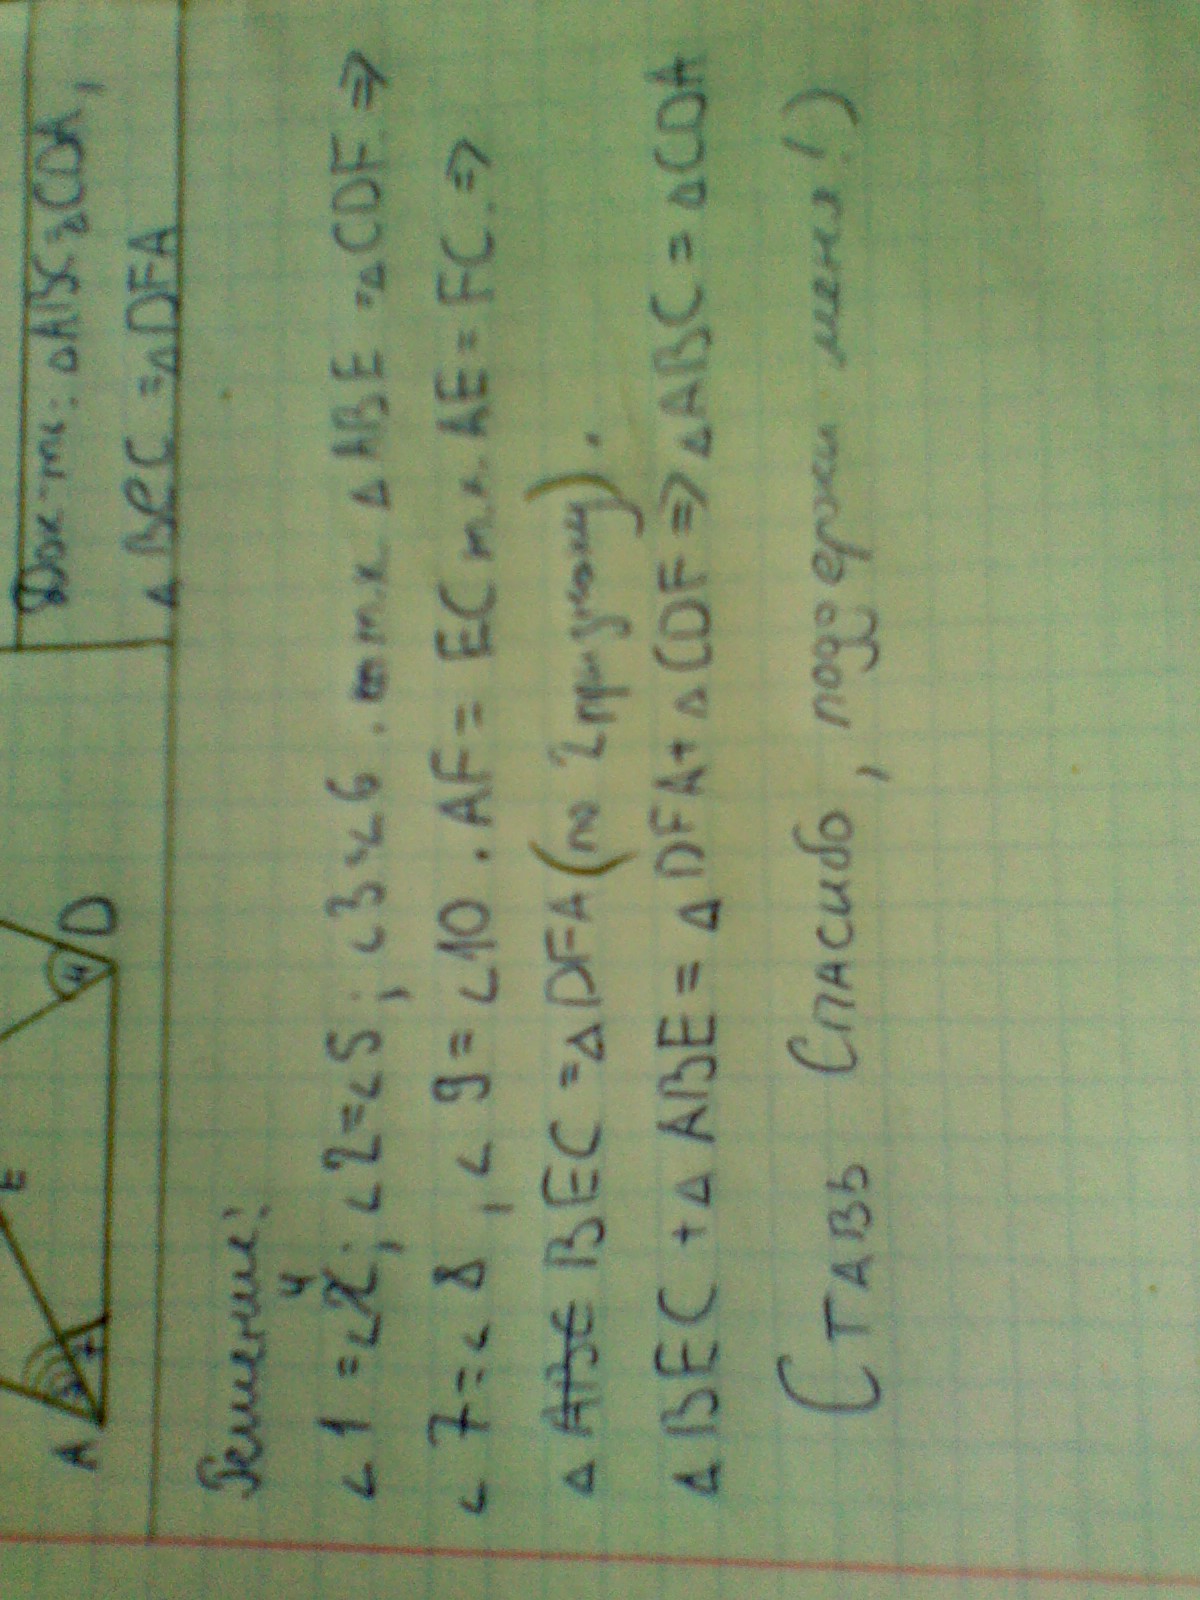 Док-ть: △ABC=△CDA,
△BEC=△DFA
A
E
D
4
Решение:
∠1=∠4; ∠2=∠5; ∠3=∠6. т.к △ABE=△CDF ⇒
∠7=∠8, ∠9=∠10. AF=EC т.к. AE=FC. ⇒
△BEC=△DFA (по 2 признаку).
△BEC+△ABE=△DFA+△CDF ⇒ △ABC=△CDA
Ставь Спасибо, поддержи меня!)